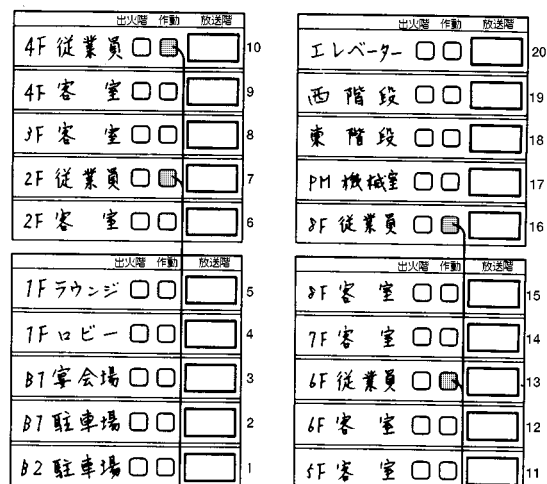 出火階 作動 放送階
4F 従業員 10
4F 客室 9
3F 客室 8
2F 従業員 7
2F 客室 6
出火階 作動 放送階
1F ラウンジ 5
1F ロビー 4
B1 宴会場 3
B1 駐車場 2
B2 駐車場 1
出火階 作動 放送階
エレベーター 20
西階段 19
東階段 18
PH 機械室 17
8F 従業員 16
出火階 作動 放送階
8F 客室 15
7F 客室 14
6F 従業員 13
6F 客室 12
5F 客室 11